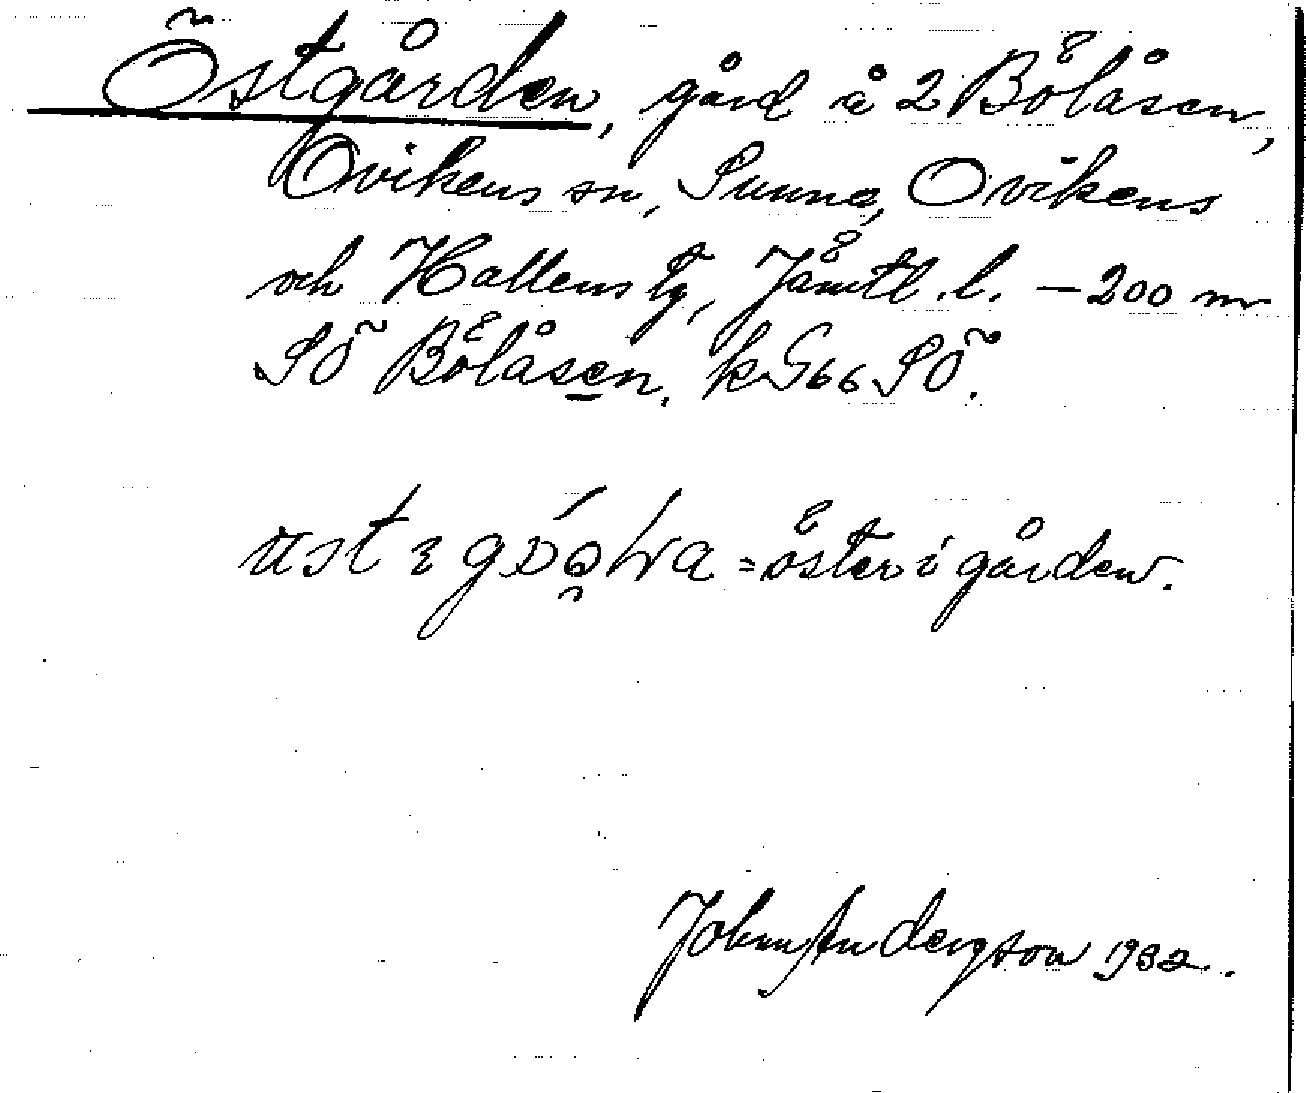 Östgården, gård å 2 Bölåsen,
Ovikens sn, Sunne, Ovikens
och Hallens tg, Jämtl. l. – 200 m
SÖ Bölåsen. k G66 SÖ.
= öster i gården.
John Andersson 1932.